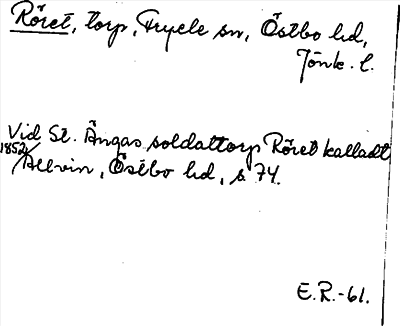 Röret, torp, Fryele sn, Östbo hd,
Jönk. l.
Vid St. Ängas soldattorp Röret kalladt
1852/Allvin, Östbo hd, s 74.
E.R.-61.